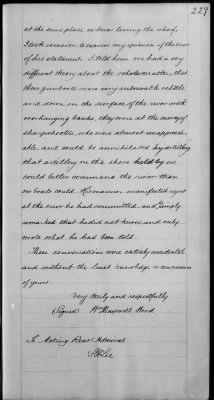 229
at the same place as I was leaving the wharf,
I took occasion to express my opinion of the error
of his statement. I told him we had a very
different theory about the whole matter, that
these gunboats were very vulnerable vessels,
and down on the surface of the river with
overhanging banks, they were at the mercy of
sharpshooters, who were almost unapproach-
able, and could be annihilated by artillery
that artillery on the shore held by us
could better command the river than
our boats could. Hermance manifested regret
at the error he had committed, and simply
remarked that he did not know, and only
wrote what he had been told.
These conversations were entirely accidental
and without the least knowledge or concurrence
of yours.
Very truly and respectfully
(Signed) Wm Maxwell Wood
To Acting Rear Admiral
S. P. Lee